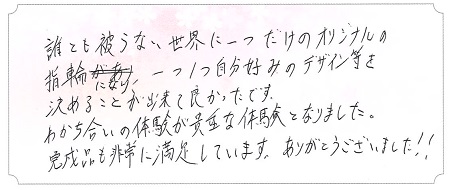 誰とも被らない世界に一つだけのオリジナルの
指輪になり、一つ1つ自分好みのデザイン等を
決めることが出来て良かったです。
わかち合いの体験が貴重な体験となりました。
完成品も非常に満足しています。ありがとうございました!!